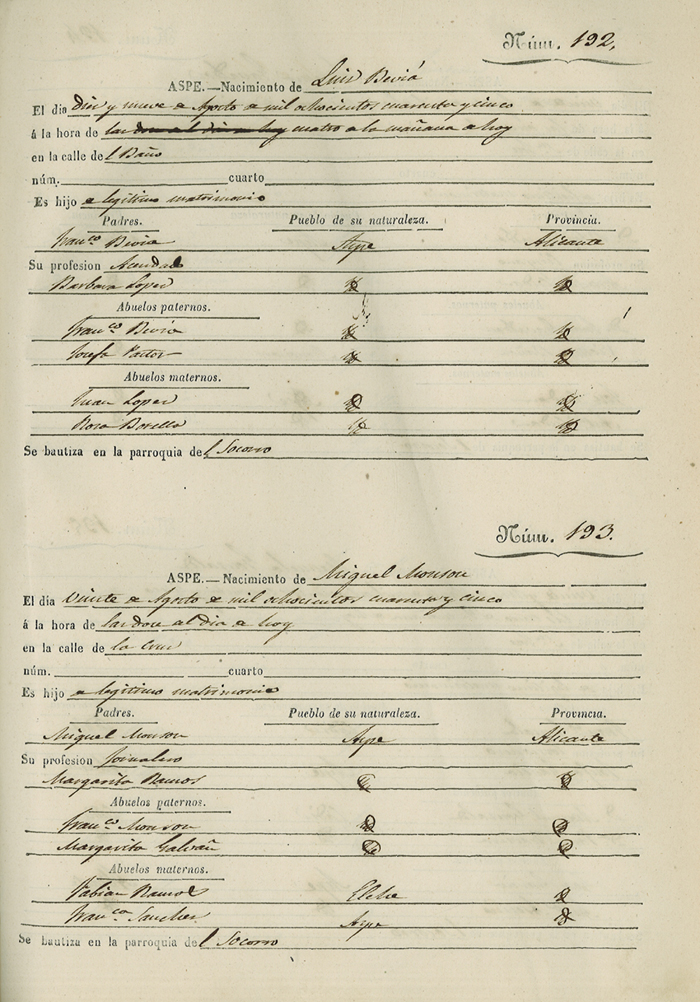 Núm. 192.
ASPE.—Nacimiento de Luis Beviá
El dia Diez y nueve de Agosto de mil ochocientos cuarenta y cinco
á la hora de las doce al dia de hoy cuatro de la mañana de hoy
en la calle de l Baño
núm. cuarto
Es hijo de legitimo matrimonio
Padres. Pueblo de su naturaleza. Provincia.
Franco Beviá Aspe Alicante
Su profesion
Barbara Lopez Id Id
Abuelos paternos.
Franco Beviá Id Id
Josefa Pastor Id Id
Abuelos maternos.
Juan Lopez Id Id
Rosa Botella Id Id
Se bautiza en la parroquia de l Socorro
Núm. 193.
ASPE.—Nacimiento de Miguel Monzon
El día Veinte de Agosto de mil ochocientos cuarenta y cinco
á la hora de las doce al dia de hoy
en la calle de la Cruz
núm. cuarto
Es hijo de legitimo matrimonio
Padres. Pueblo de su naturaleza. Provincia.
Miguel Monzon Aspe Alicante
Su profesion Jornalero
Margarita Ramos Id Id
Abuelos paternos.
Franco Monzon Id Id
Margarita Galvañ Id Id
Abuelos maternos.
Fabian Ramos Elche Id
Franca Sanchez Aspe Id
Se bautiza en la parroquia de l Socorro